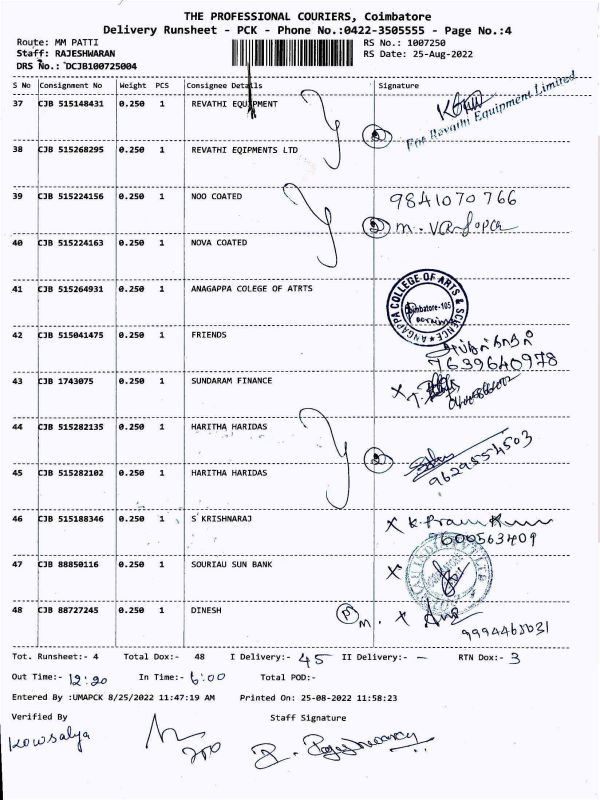 THE PROFESSIONAL COURIERS, Coimbatore
Delivery Runsheet - PCK - Phone No.:0422-3505555 - Page No.:4
Route: MM PATTI RS No.: 1007250
Staff: RAJESHWARAN RS Date: 25-Aug-2022
DRS No.: DCJB100725004
S No Consignment No Weight PCS Consignee Details Signature
37 CJB 515148431 0.250 1 REVATHI EQUIPMENT
For Revathi Equipment Limited
2
38 CJB 515268295 0.250 1 REVATHI EQIPMENTS LTD
39 CJB 515224156 0.250 1 NOO COATED 9841070766
2
40 CJB 515224163 0.250 1 NOVA COATED
41 CJB 515264931 0.250 1 ANAGAPPA COLEGE OF ATRTS
ANGAPPA COLLEGE OF ARTS & SCIENCE
Coimbatore-105
42 CJB 515041475 0.250 1 FRIENDS
7639640978
43 CJB 1743075 0.250 1 SUNDARAM FINANCE X
44 CJB 515282135 0.250 1 HARITHA HARIDAS
2 9629554503
45 CJB 515282102 0.250 1 HARITHA HARIDAS
46 CJB 515188346 0.250 1 S KRISHNARAJ X
9600563409
47 CJB 88850116 0.250 1 SOURIAU SUN BANK X
48 CJB 88727245 0.250 1 DINESH P M. X
Tot. Runsheet:- 4 Total Dox:- 48 I Delivery:- 45 II Delivery:- - RTN Dox:- 3
Out Time:- 12:20 In Time:- 6:00 Total POD:-
Entered By :UMAPCK 8/25/2022 11:47:19 AM Printed On: 25-08-2022 11:58:23
Verified By Staff Signature
Kowsalya